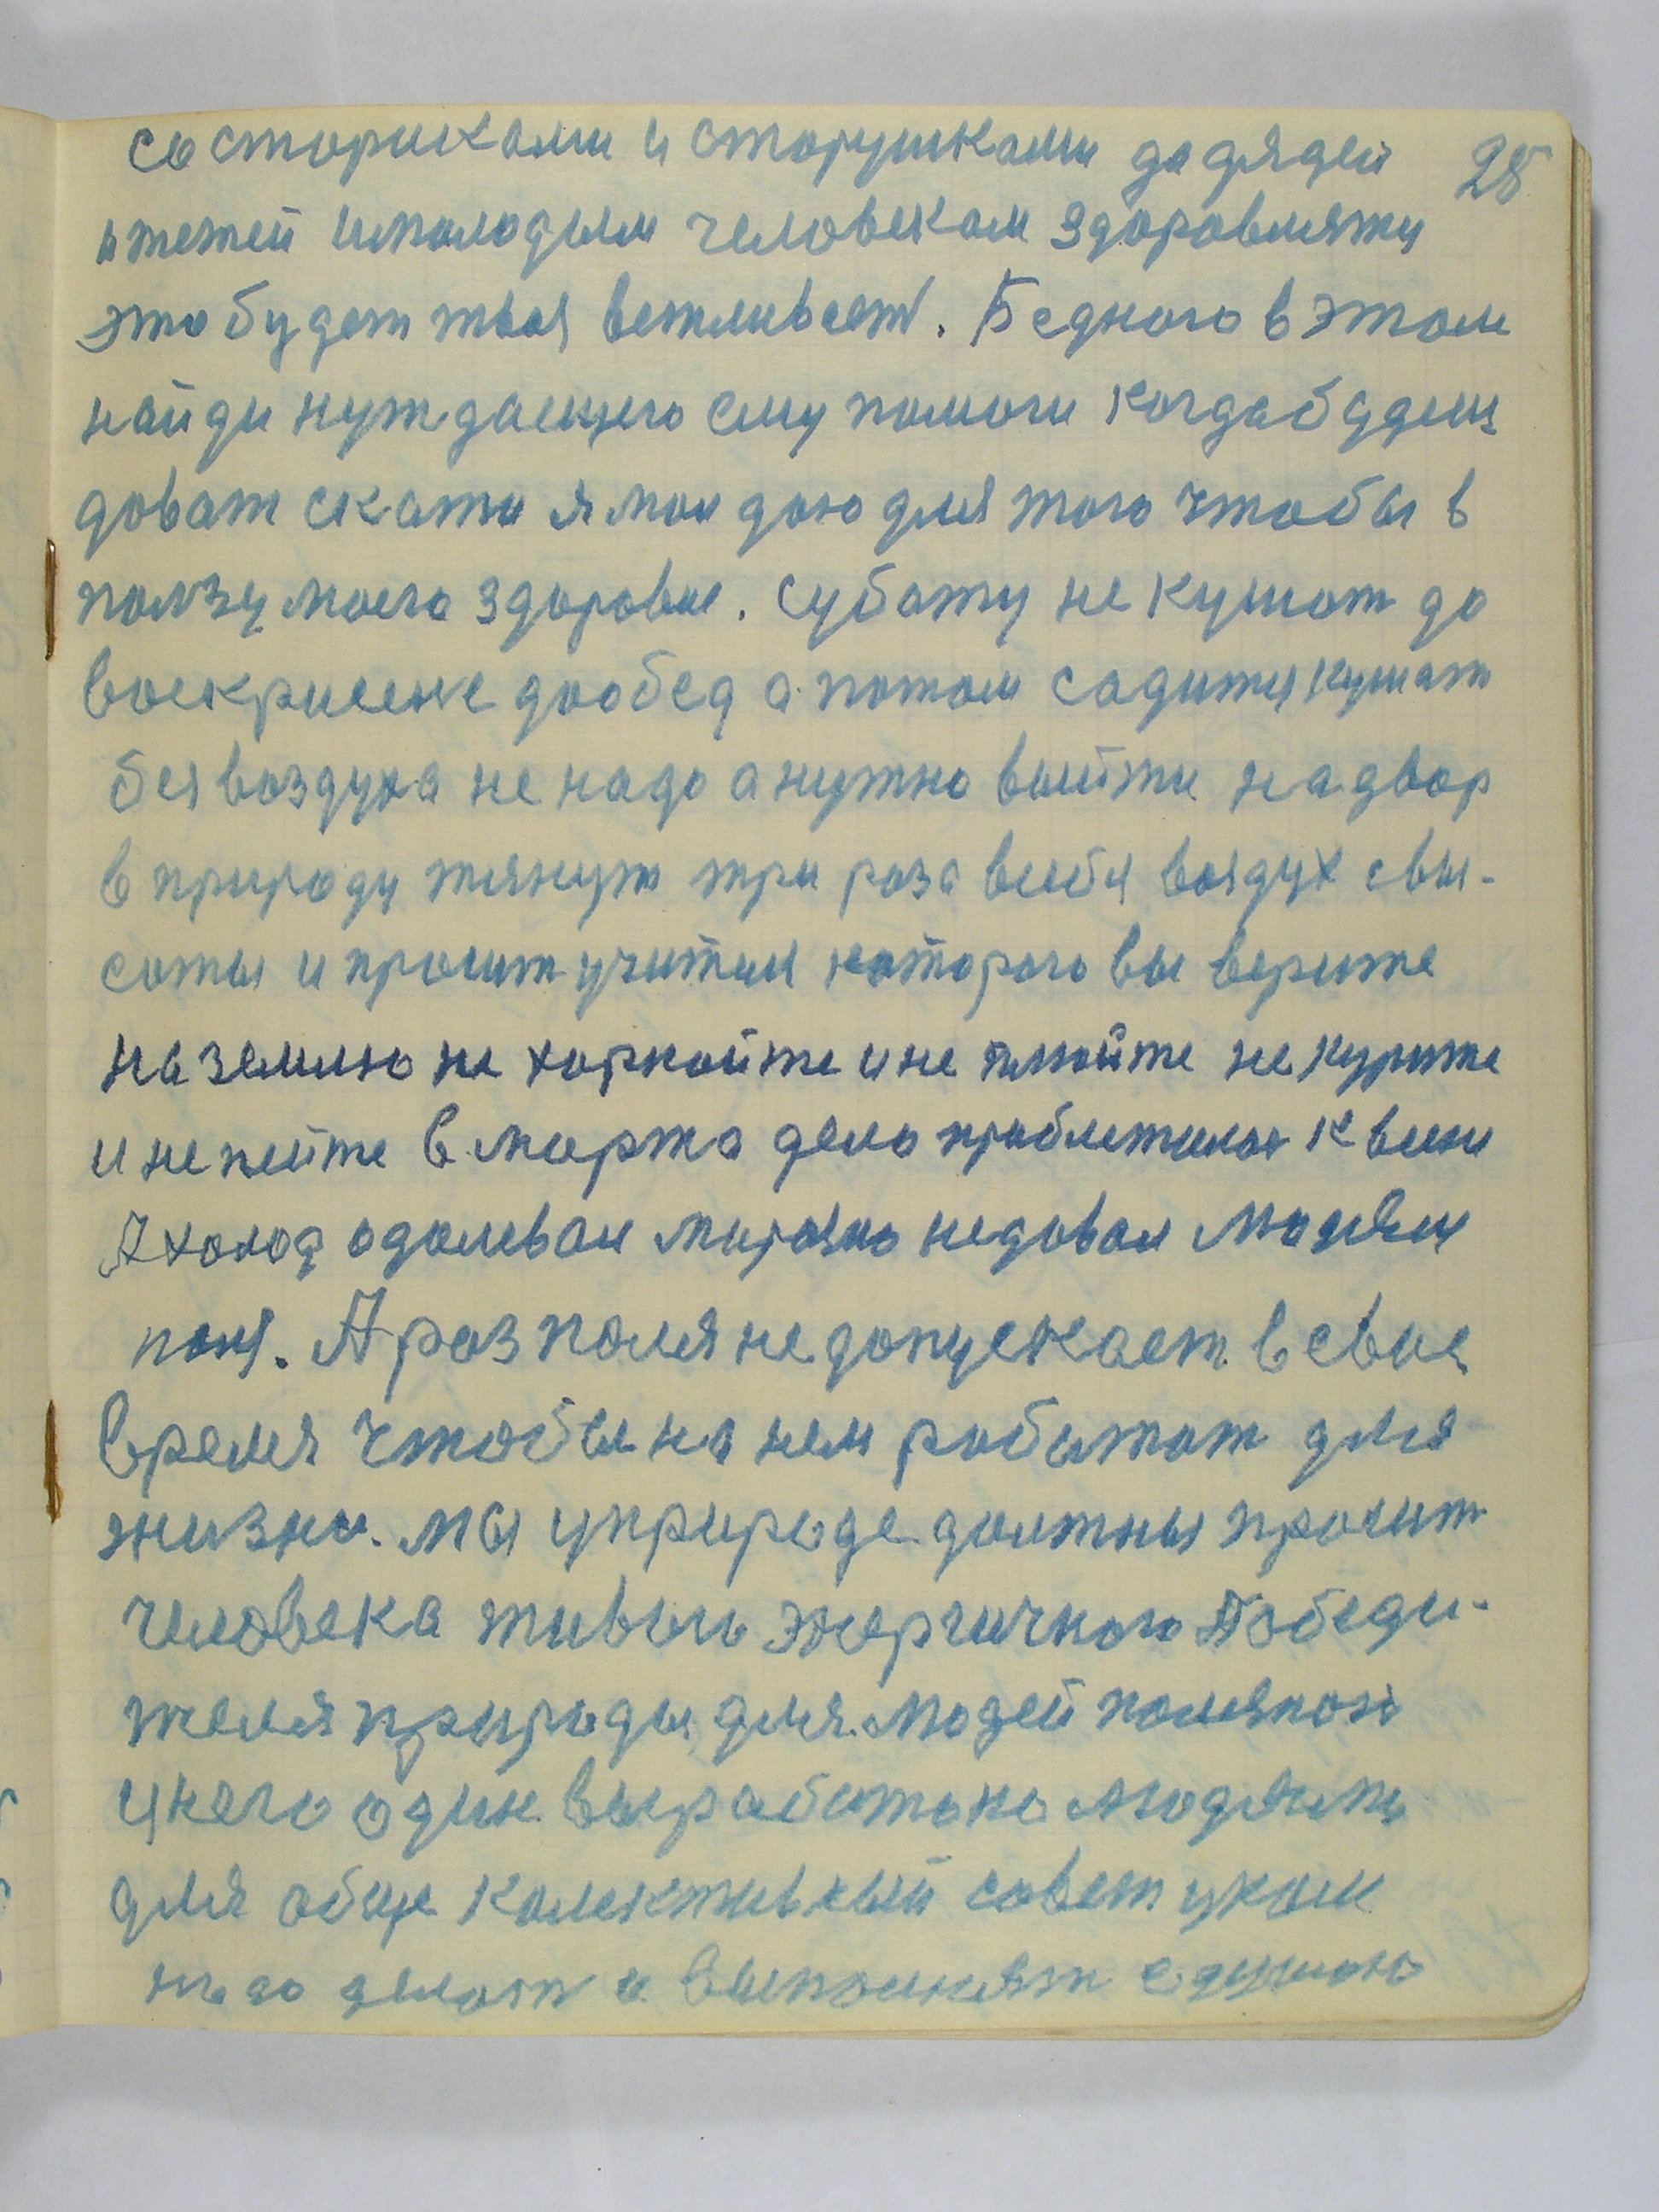 со сториками и сторушками до дядей 28
и тетей и молодым человеком здоровляти
это будет твоя ветливаст. Бедного в этом
найди нуждающего ему помоги когда будеш
доват скати я мои даю для того чтобы в
ползу моего здоровье. Суботу не кушат до
воскрисене до обед а потом садити кушат
без воздуха не надо а нужно выйти на двор
в природу тянут три раза в себя воздух с вы-
соты и просит учителя которого вы верите
на землю не харкайте и не плюйте не курите
и не пейте в марта дело приближилос к весни
А холод одолевал не довал людям
поля. А раз поля не допускает в свае
время чтобы на нем работат для
жизни. мы у природе должны просит
человека живого энергичного Победи-
теля природы для людей
у него один выработоно людями
для обще колективный совет
надо делат и выполнят с душою